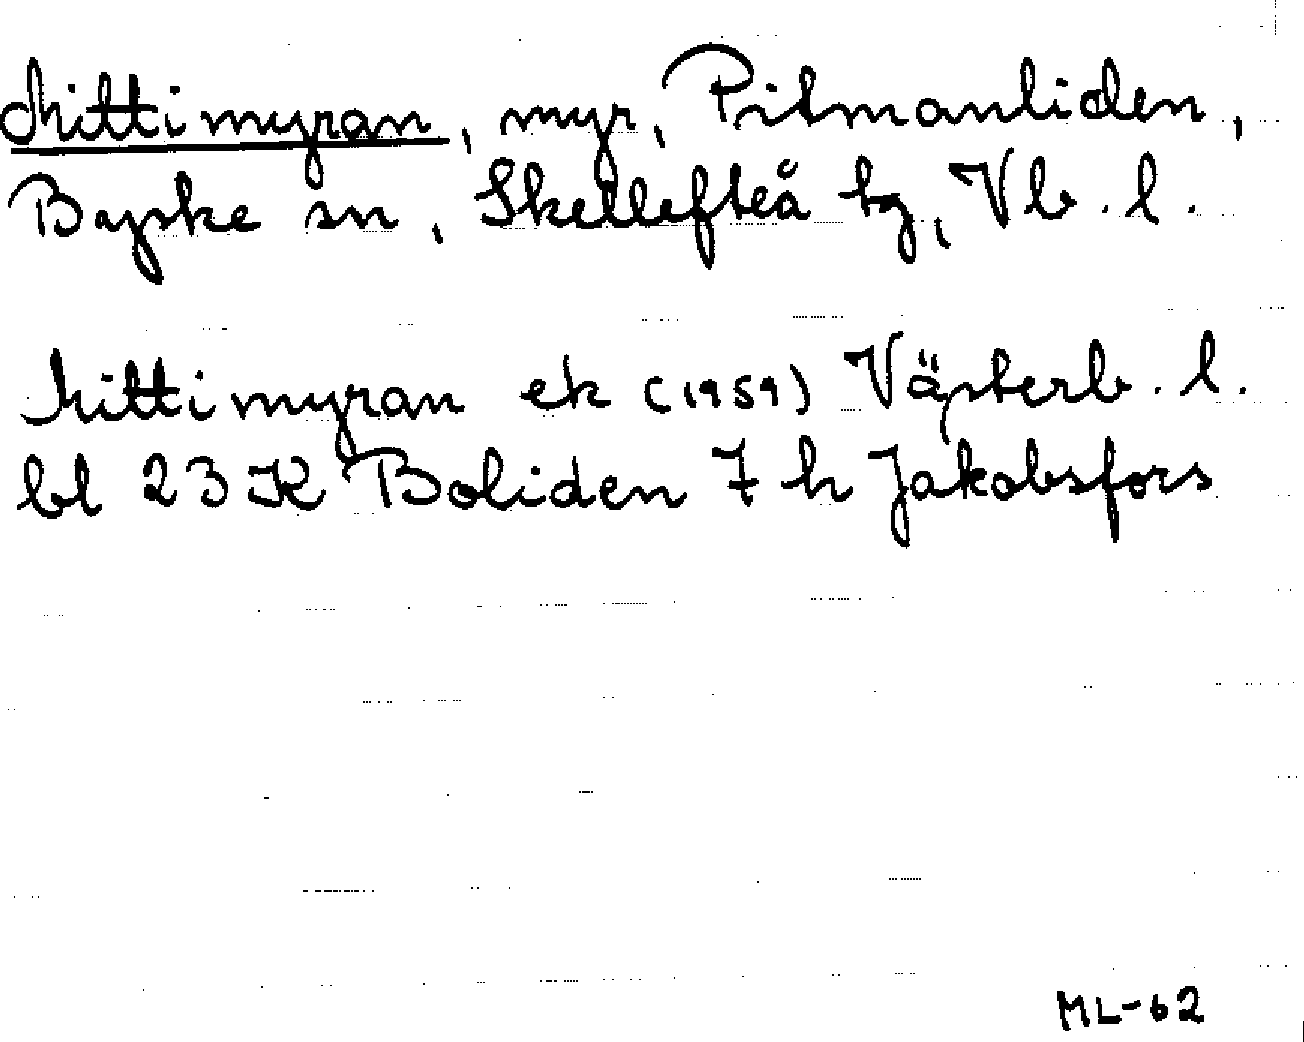 Mittimyran, myr, Pitmanliden,
Byske sn, Skellefteå tg, Vb. l.
Mittimyran ek (1959) Västerb. l.
bl 23 K Boliden 7 h Jakobsfors
ML-62